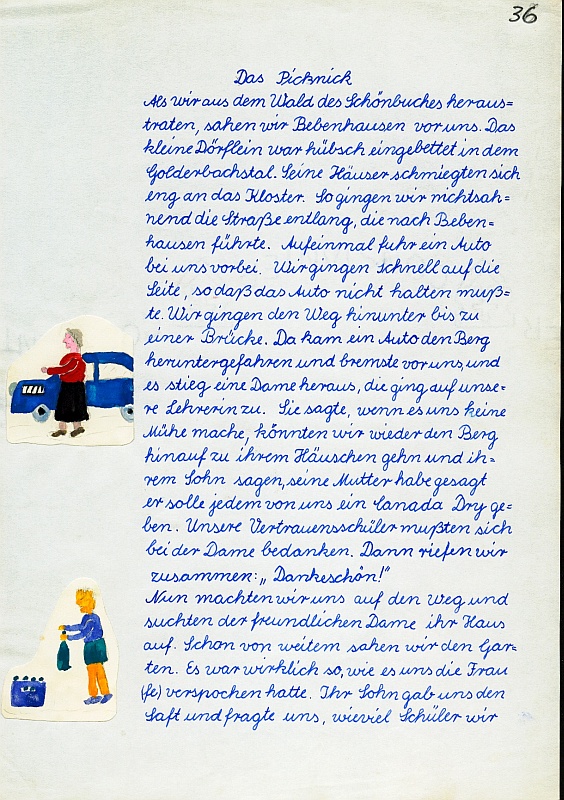 36
Das Picknick
Als wir aus dem Wald des Schönbuches heraus=
traten, sahen wir Bebenhausen vor uns. Das
kleine Dörflein war hübsch eingebettet in dem
Golderbachstal. Seine Häuser schmiegten sich
eng an das Kloster. So gingen wir nichtsah=
nend die Straße entlang, die nach Beben=
hausen führte. Aufeinmal fuhr ein Auto
bei uns vorbei. Wir gingen Schnell auf die
Seite, so daß das Auto nicht halten muß=
te. Wir gingen den Weg hinunter bis zu
einer Brücke. Da kam ein Auto den Berg
heruntergefahren und bremste vor uns, und
es stieg eine Dame heraus, die ging auf unse=
re Lehrerin zu. Sie sagte, wenn es uns keine
Mühe mache, könnten wir wieder den Berg
hinauf zu ihrem Häuschen gehn und ih=
rem Sohn sagen, seine Mutter habe gesagt
er solle jedem von uns ein Canada Dry ge=
ben. Unsere Vertrauensschüler mußten sich
bei der Dame bedanken. Dann riefen wir
zusammen: „Dankeschön!"
Nun machten wir uns auf den Weg und
suchten der freundlichen Dame ihr Haus
auf. Schon von weitem sahen wir den Gar=
ten. Es war wirklich so, wie es uns die Frau
(fe) verspochen hatte. Ihr Sohn gab uns den
Saft und fragte uns, wieviel Schüler wir